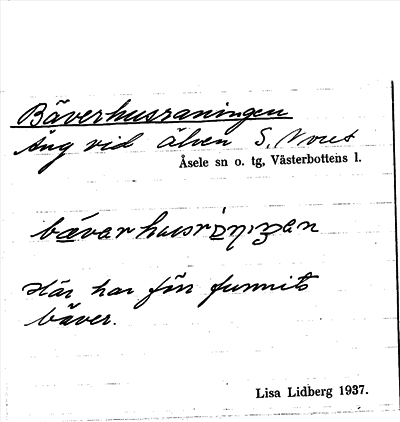 Bäverhusraningen
Äng vid älven S. Noret
Åsele sn o. tg, Västerbottens l.
Här har förr funnits
bäver.
Lisa Lidberg 1937.